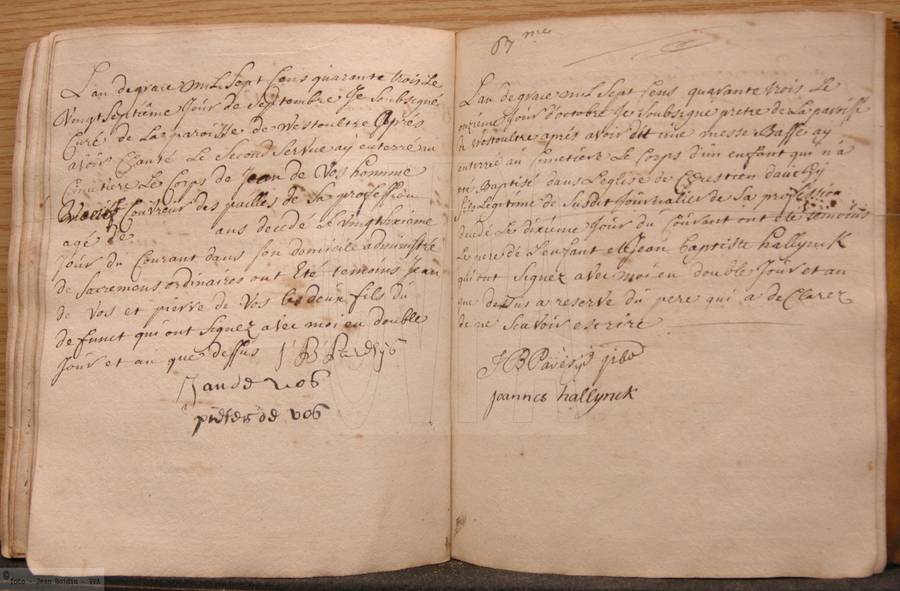 L'an de grace mil Sept Cens quarante trois Le
Vingt Septiéme Jour de Septembre Je Soubsigné
Curé de La paroisse de Westoultre Après
avoir Chanté Le Second Servic ay enterré au
Cimetiere Le Corps de Jean de Vos homme
Couvreur des pailles de Sa profession
agé de ans decedé Le Vingt sixieme
Jour du Courant dans Son domicile administré
de Sacremens ordinaires ont Eté temoins Jean
de Vos et pierre de Vos les deux fils du
defunct qui ont Signez avec moi en double
Jour et an que dessus J B
Jan de vos
pieter de vos
67 me
L'an de grace mil Sept Cens quarante trois Le
onziéme Jour d'octobre Je Soubsigné pretre de La paroisse
de Westoultre aprés avoir dit une messe Basse ay
enterré au Cimetiere Le Corps d'un enfant qui n'a
eté Baptisé dans L'eglise de Chrestien dauchy
fils Legitime de Susdit Journalier de Sa profession
decedé Le dixiéme Jour du Courant ont eté temoins
Le pere de L'enfant et Jean baptiste hallynck
qui ont Signez avec moi en double Jour et an
que dessus a reserve du pere qui a declarez
de ne Scavoir escrire
J B
joannes hallynck
foto - Jean Boidin - VVA